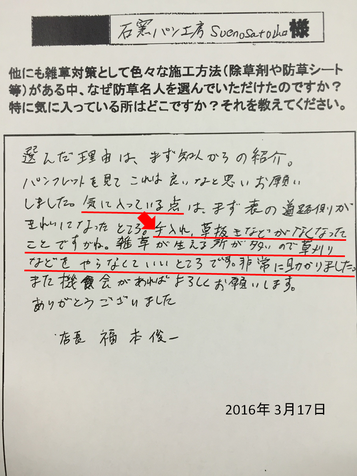 石窯パン工房 Suenosatoko様
他にも雑草対策として色々な施工方法(除草剤や防草シート
等)がある中、なぜ防草名人を選んでいただけたのですか?
特に気に入っている所はどこですか?それを教えてください。
選んだ理由は、まず知人からの紹介。
パンフレットを見てこれは良いなと思いお願い
しました。気に入っている点は、まず表の道路側が
きれいになったところ。手入れ、草抜きなどがなくなった
ことですかね。雑草が生える所が多いので草刈り
などをやらなくていいところです。非常に助かりました。
また機会があればよろしくお願いします。
ありがとうございました
店長 福本俊一
2016年3月17日